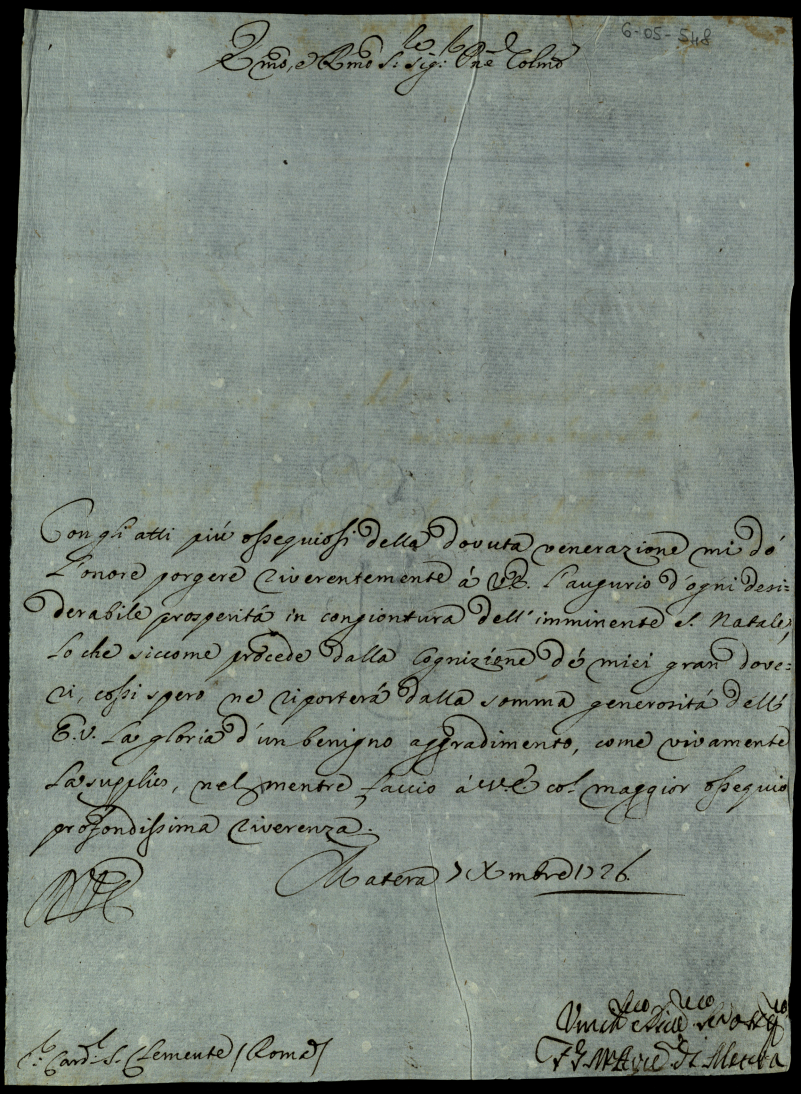 6-05-548
Emo, e Rmo Sig: Sig: Pne Colmo
Con gli atti più ossequiosi della dovuta venerazione mi dò
l'onore porgere riverentemente á V.E. l'augurio d'ogni desi=
derabile prosperitá in congiontura dell'imminente S. Natale,
lo che siccome procede dalla Cognizione dé miei gran dove=
ri, cossi spero ne riporterá dalla somma generositá dell'
E.V. la gloria d'un benigno aggradimento, come vivamente
la supplico, nel mentre faccio á V.E. col maggior ossequio
profondissima riverenza.
Matera 7 Xmbre 1726.
VE
Sr Card: S. Clemente / Roma /
Vmo e
Arciv di Matera